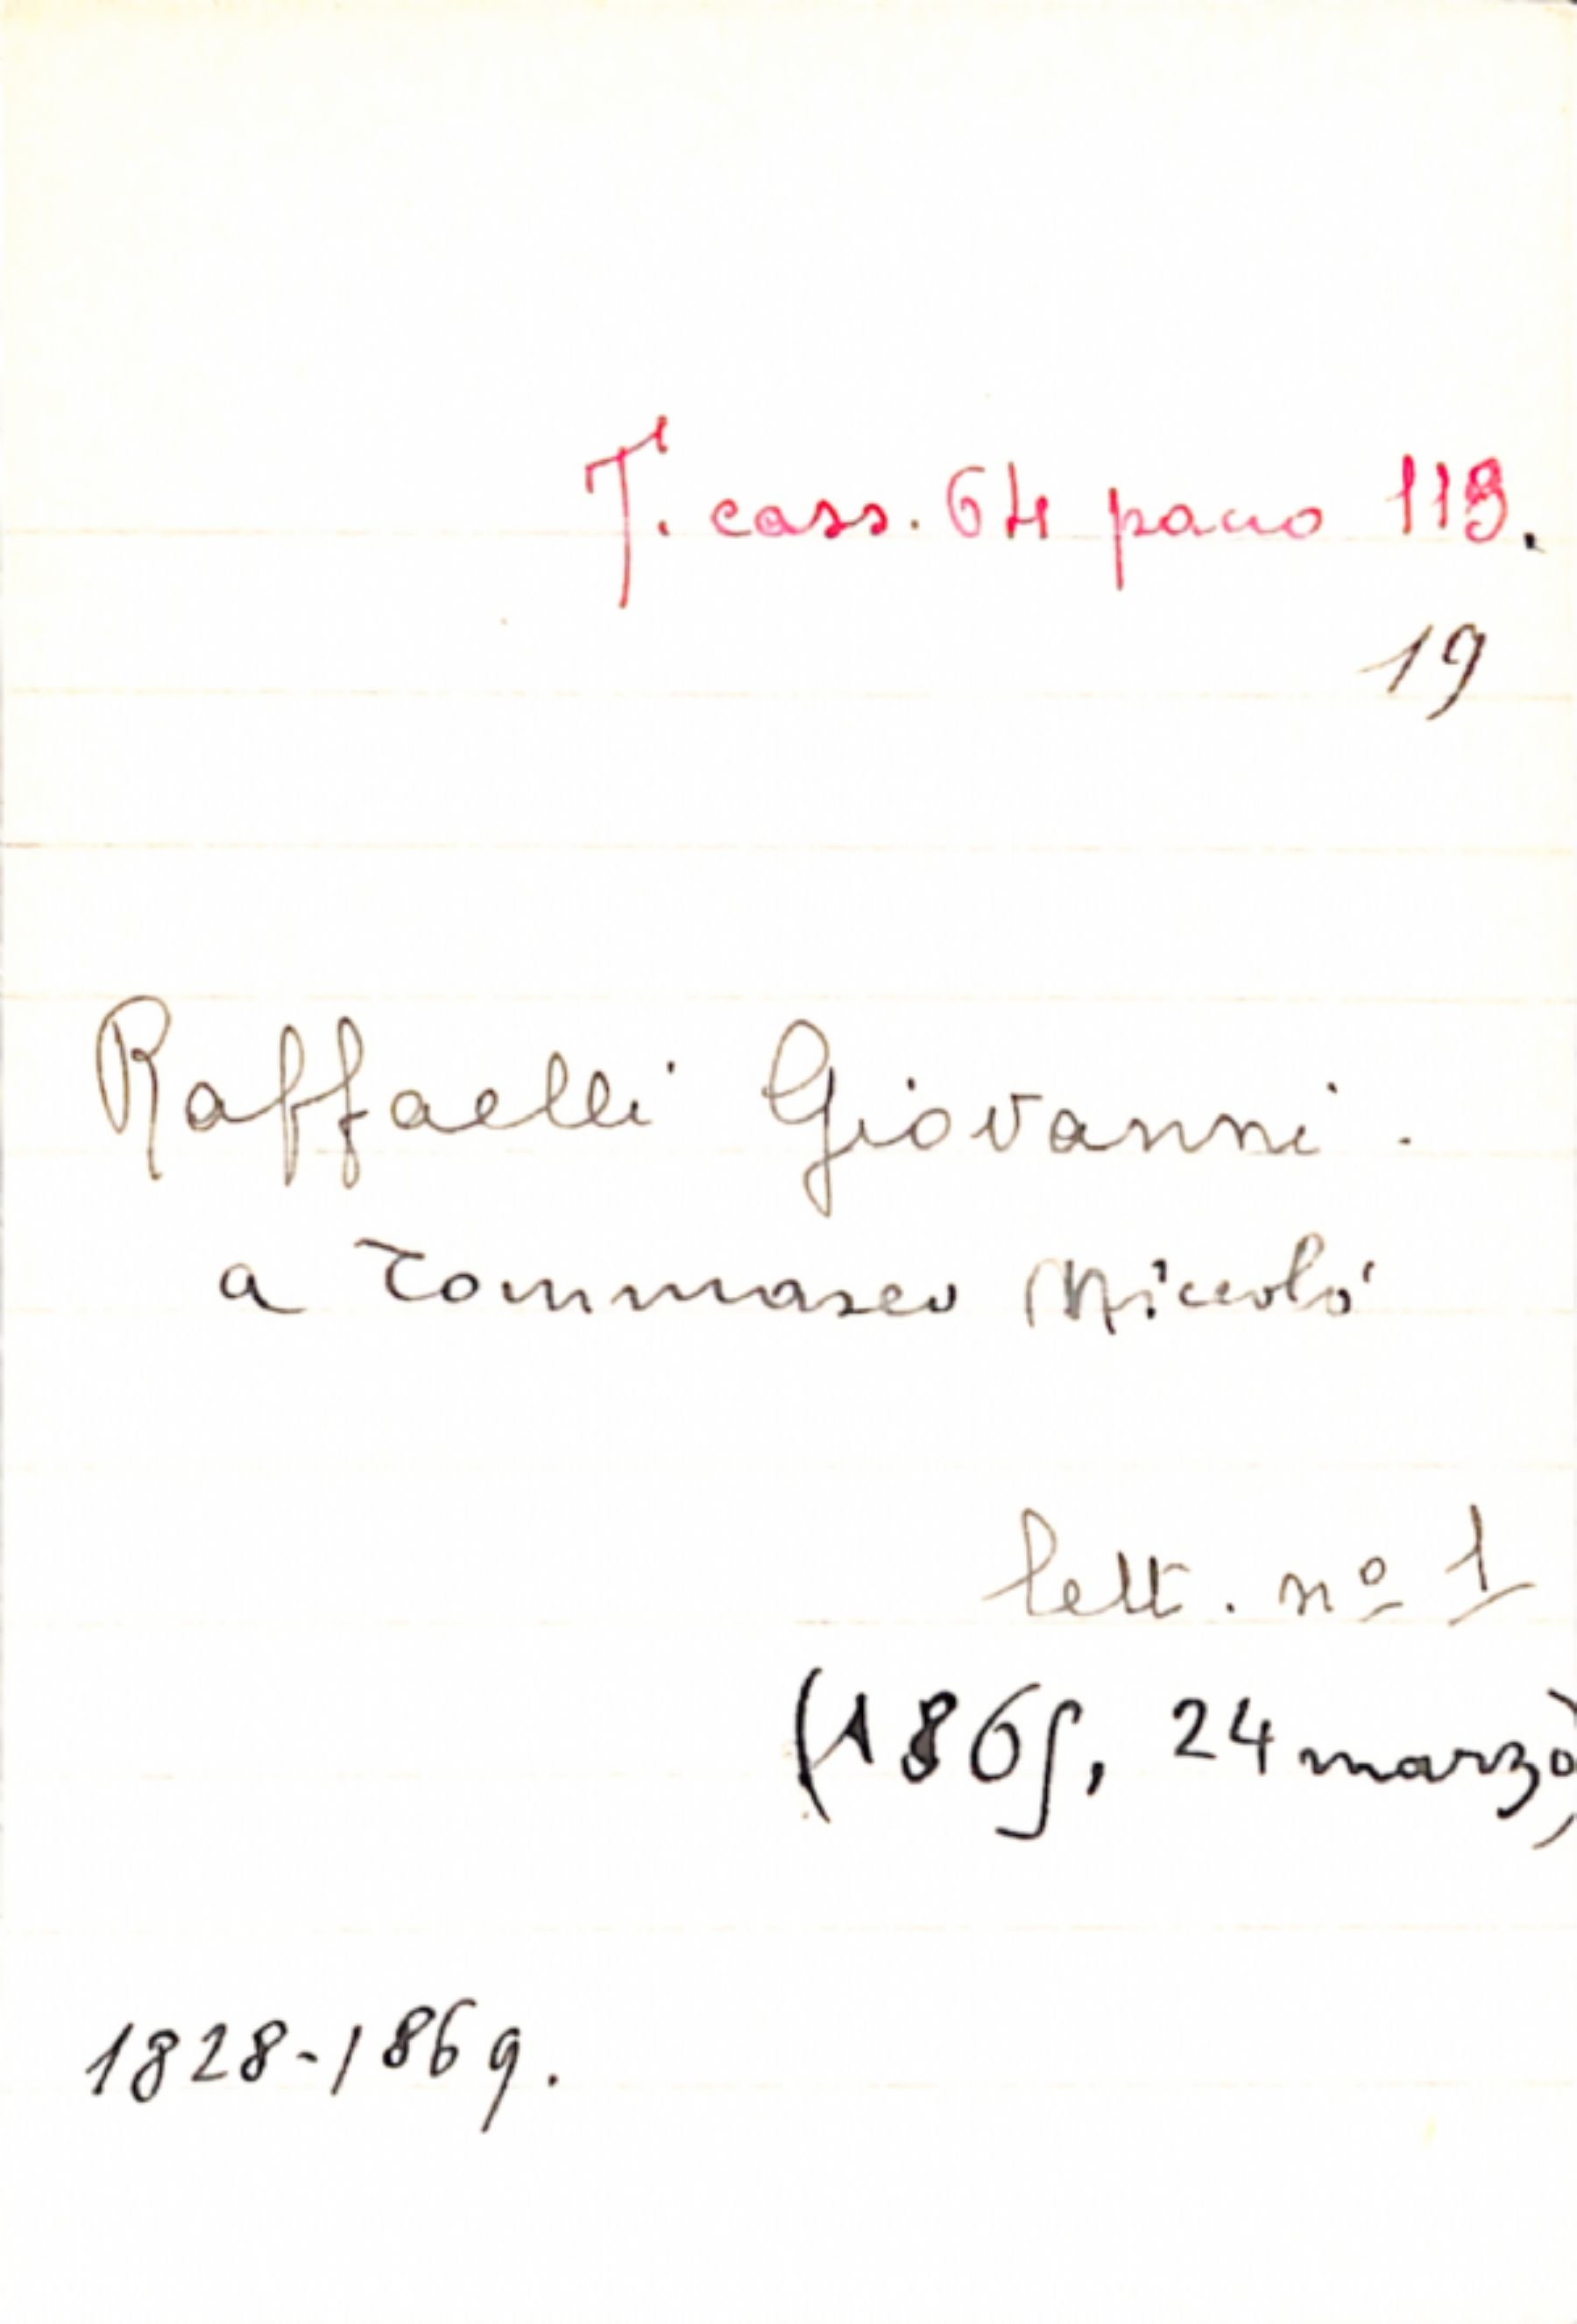 T. cass. 64 pacco 113.
19
Raffaelli Giovanni.
a Tommaseo Niccolò
lett. nº 1
(1865, 24 marzo)
1828-1869.